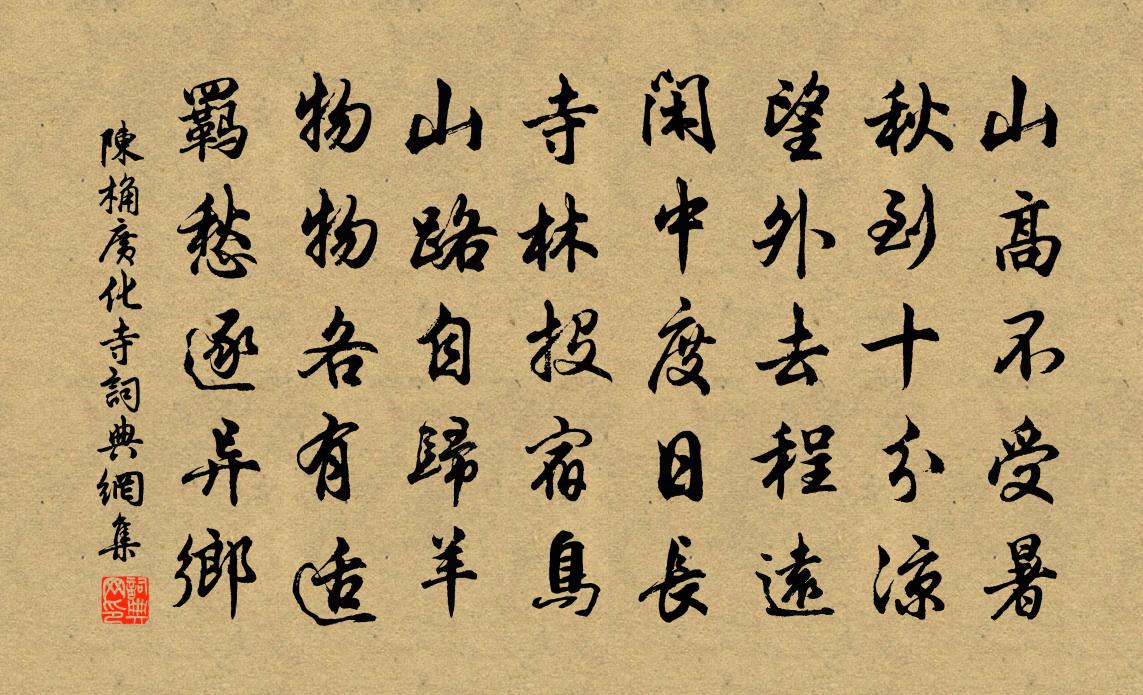 山高不受暑
秋到十分凉
望外去程遠
閑中度日長
寺林投宿鳥
山路自歸羊
物物各有适
羈愁逐异鄉
陳桷廣化寺詞典網集
詞典網印